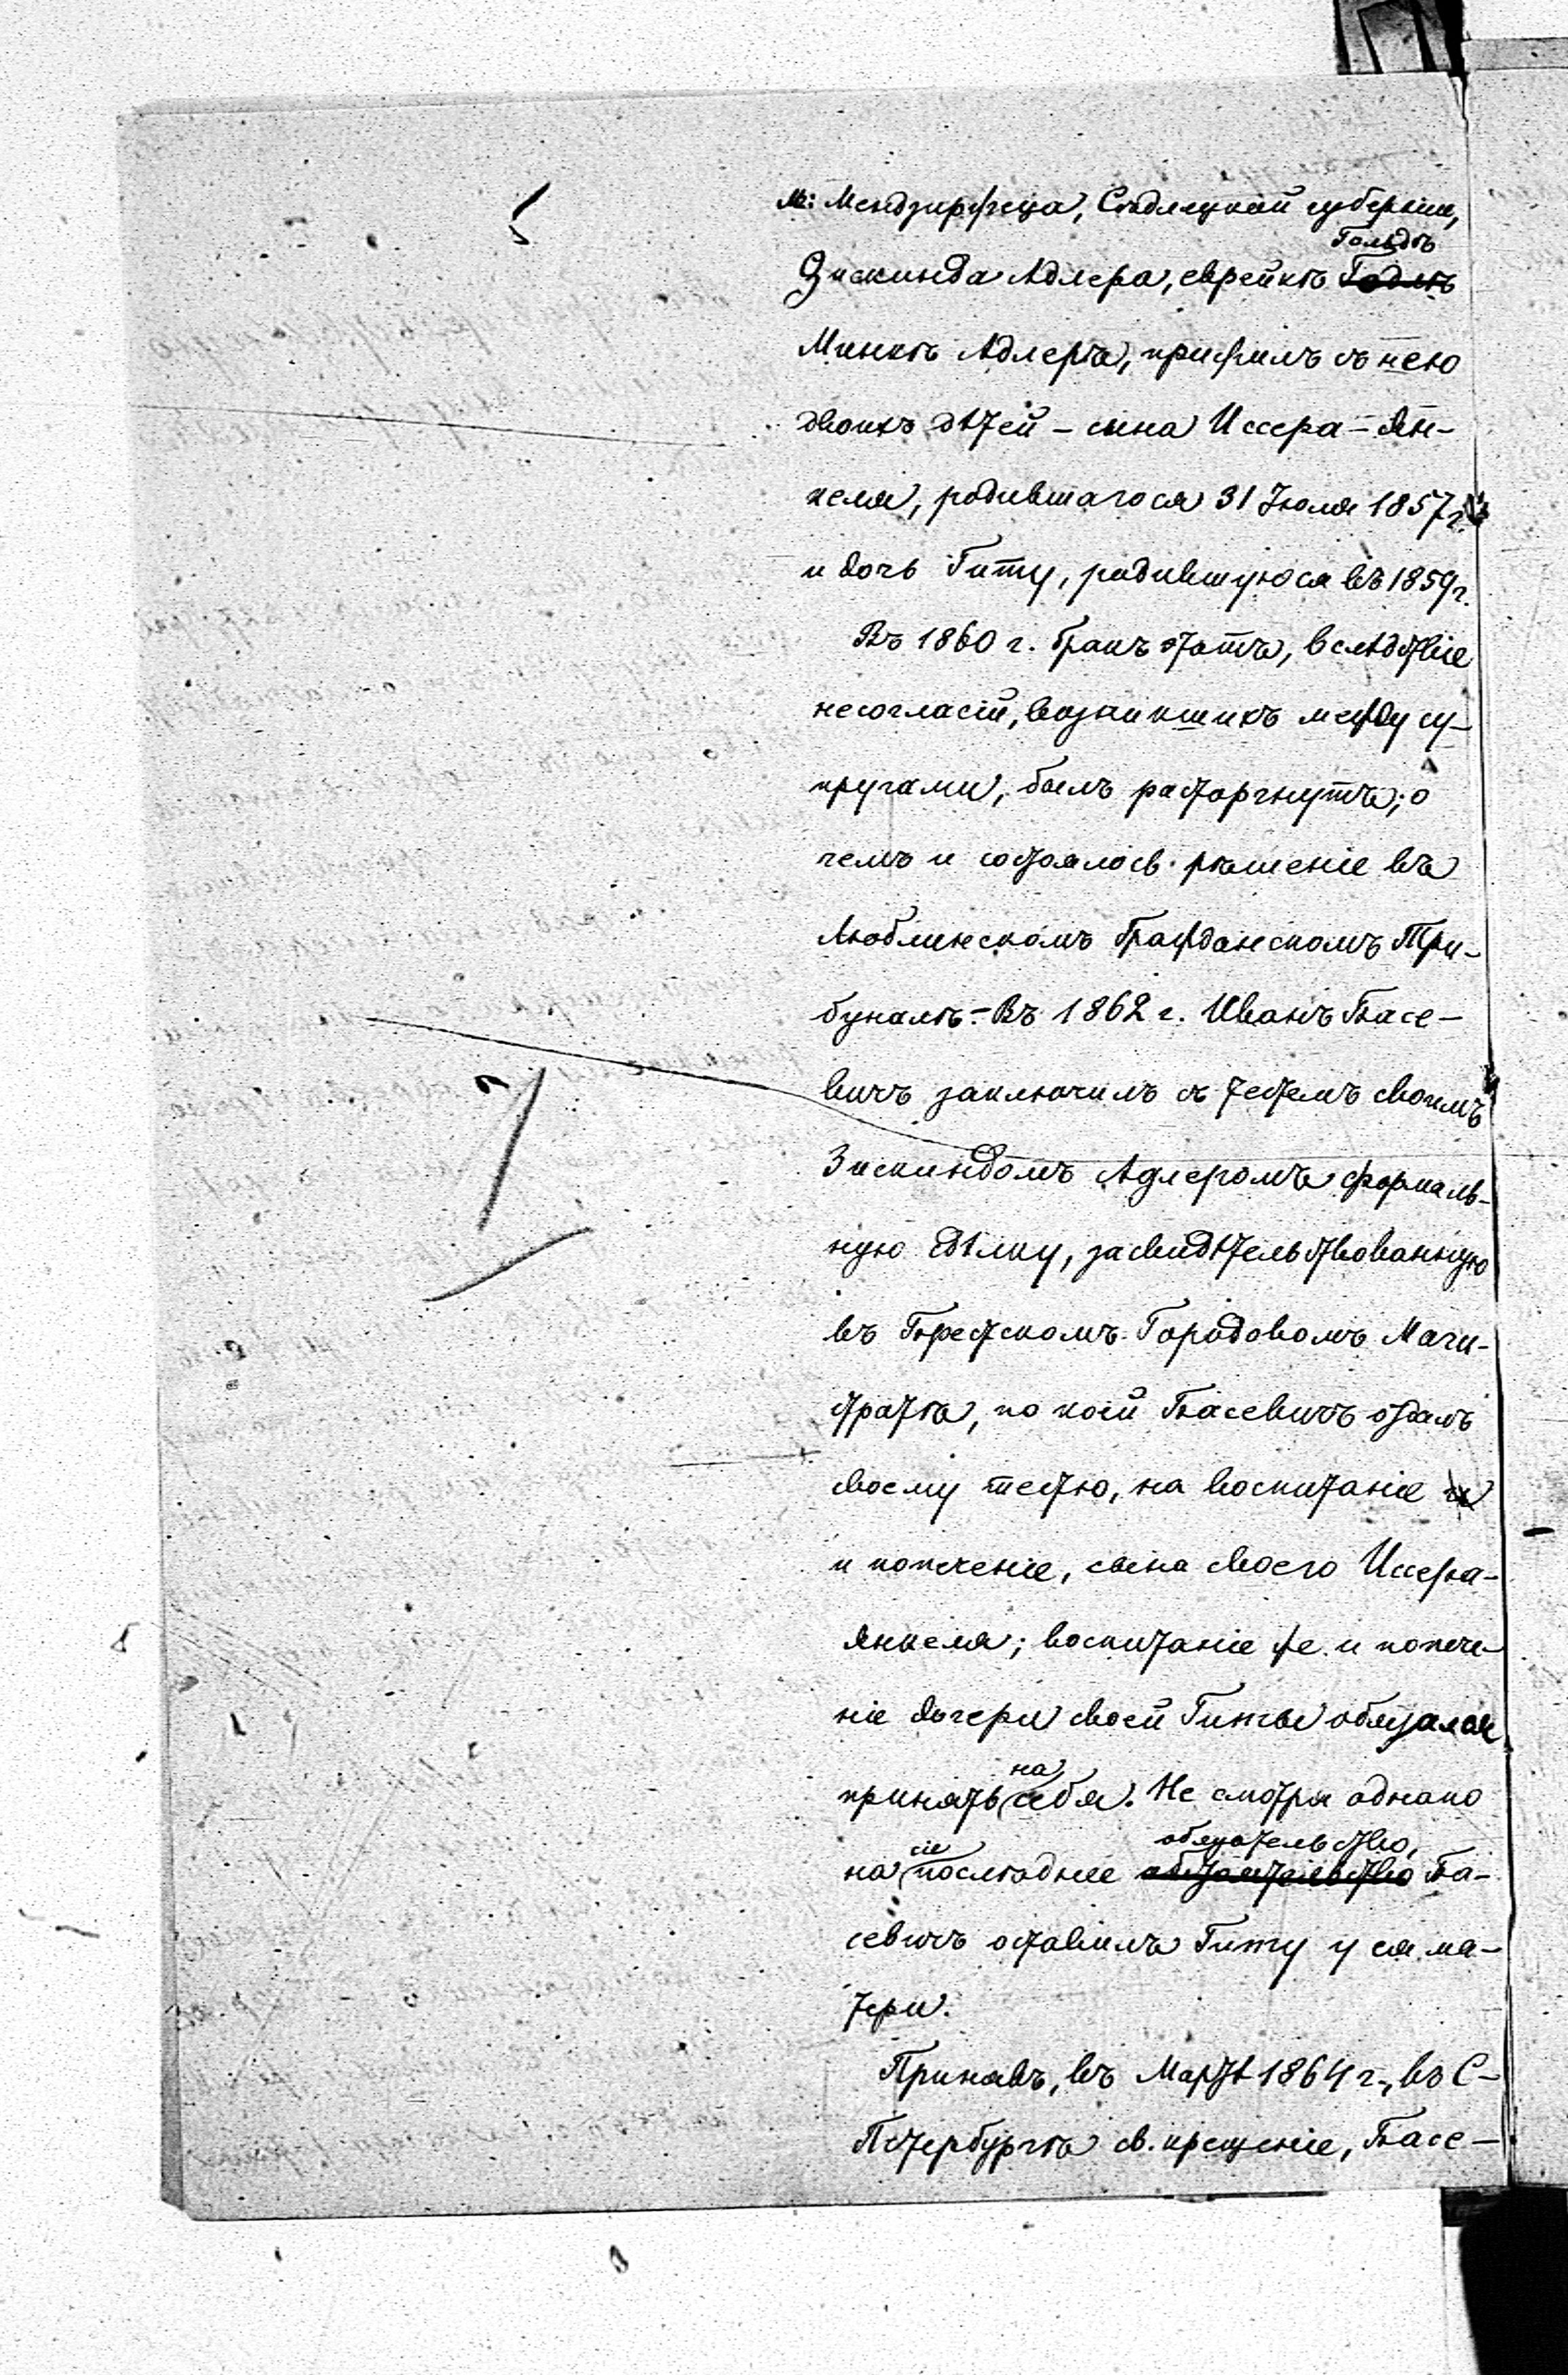 м: Мендзиржеца, Сѣдлецкой губерніи,
Гольдѣ
Зискинда Адлера, еврейкѣ Годлѣ
Минкѣ Адлеръ, прижилъ съ нею
двоихъ дѣтей – сына Иссера-Ян-
келя, родившагося 31 Іюля 1857 г.
и дочь Гиту, родившуюся въ 1859 г.
Въ 1860 г. бракъ этотъ, вслѣдствіе
несогласій, возникшихъ между су-
пругами, былъ расторгнутъ; о
чемъ и состоялось рѣшеніе въ
Люблинскомъ Гражданскомъ Три-
буналѣ. – Въ 1862 г. Иванъ Басе-
вичъ заключилъ съ тестемъ своимъ
Зискиндомъ Адлеромъ формаль-
ную сдѣлку, засвидѣтельствованную
въ Брестскомъ Городовомъ Маги-
стратѣ, по коей Басевичъ отдалъ
своему тестю, на воспитаніе и
и попеченіе, сына своего Иссера-
Янкеля; воспитаніе же и попече-
ніе дочери своей Гиты обязался
на
принять себя. Не смотря однако
сіе обязательство,
на послѣднее обязательство Ба-
севичъ оставилъ Гиту у ея ма-
тери.
Принявъ, въ Мартѣ 1864 г., въ С-
Петербургѣ св. крещеніе, Басе-